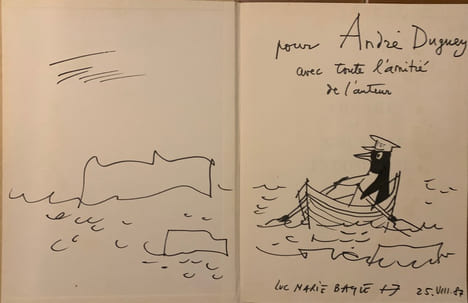 pour André Duguey
avec toute l'amitié
de l'auteur
LUC MARIE BAYLE
25.VIII.87